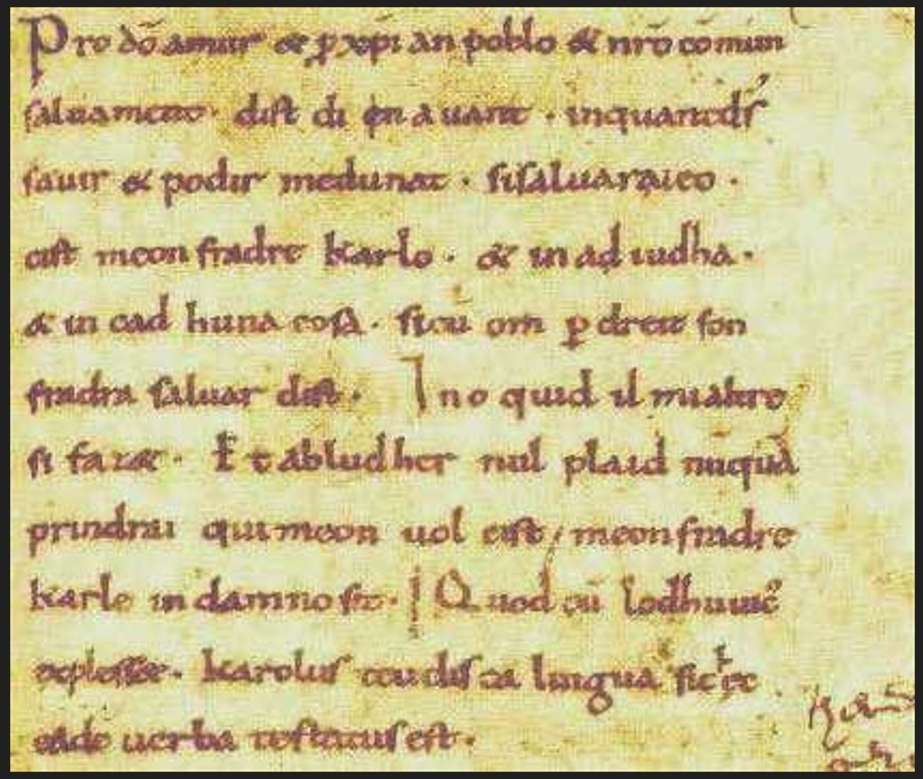 Pro dō amur & ꝑ xp̄ian poblo & nr̄o cōmun
saluament. dist di en auant. inquantdſ
sauir & podir medunat. sisaluaraieo.
cist meon fradre karlo. & in ad iudha.
& in cad huna cosa. sicū om ꝑ dreit son
fradra saluar dist. Ino quid il mialtre
si fazet. Et abludher nul plaid nūquā
prindrai qui meon uol cist meonfradre
karle in damno sit. Quod cū lodhuuic
explesset. karolus teudisca lingua sic
eadē uerba testatus est.